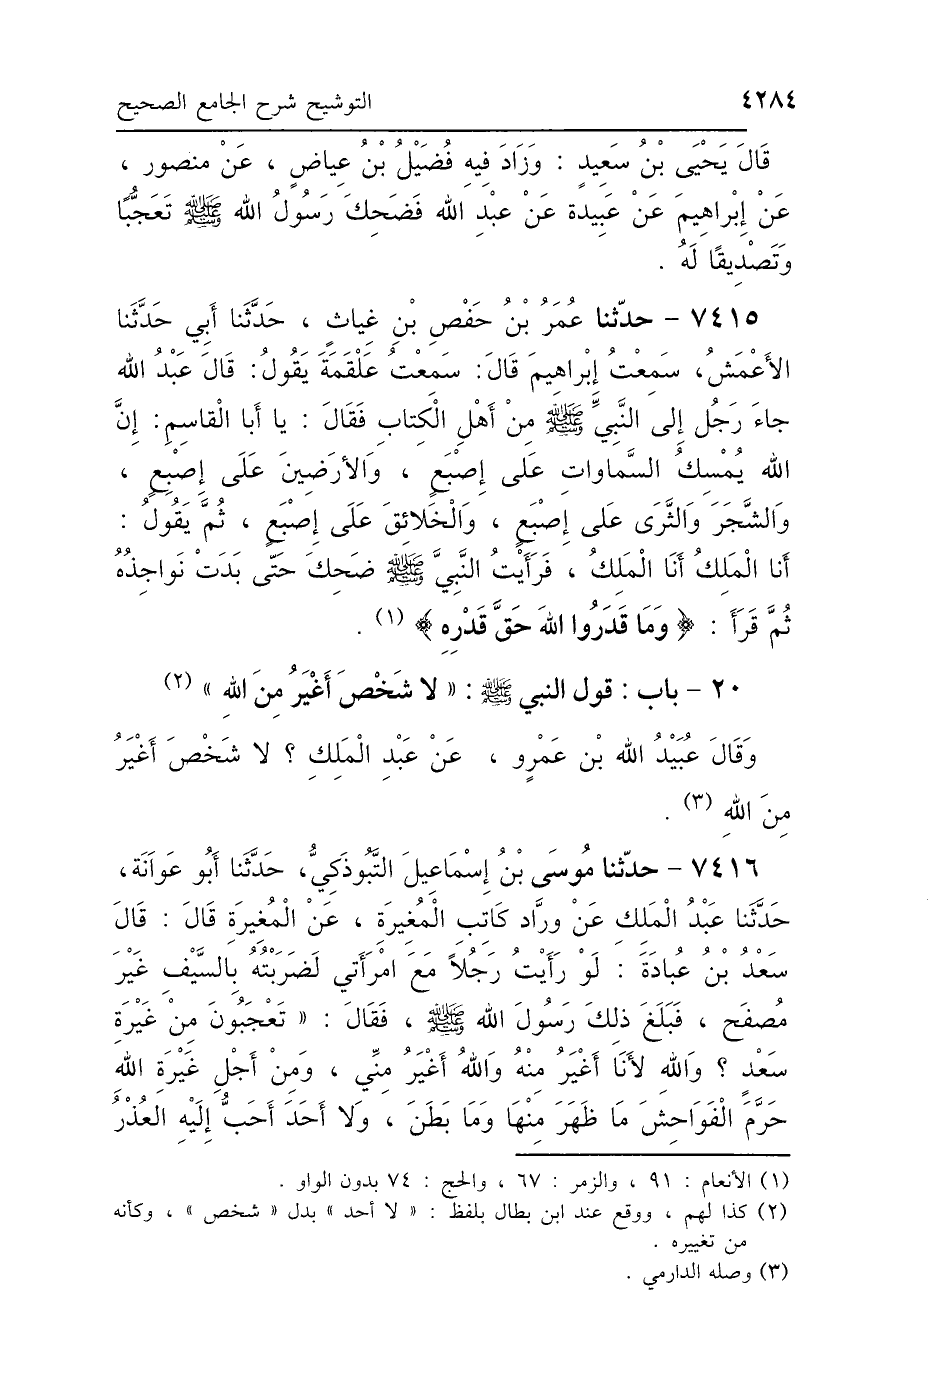 ٤٢٨٤ التوشيح شرح الجامع الصحيح
قَالَ يَحْيَى بْنُ سَعِيدٍ : وَزَادَ فِيهِ فُضَيْلُ بْنُ عِيَاضٍ ، عَنْ مَنصور ،
عَنْ إِبْراهِيمَ عَنْ عَبِيدةَ عَنْ عبْدِ الله فَضَحِكَ رَسُولُ الله ﷺ تَعَجُّبًا
وَتَصْدِيقًا لَهُ .
٧٤١٥ – حدّثنا عُمَرُ بْنُ حَفْصِ بْنِ غِياثٍ ، حَدَّثَنا أَبي حَدَّثَنا
الأَعْمَشُ، سَمِعْتُ إِبْراهِيمَ قَالَ: سَمِعْتُ عَلْقَمَةَ يَقُولُ: قَالَ عَبْدُ الله
جاءَ رَجُل إلى النَّبِيِّ ﷺ مِنْ أَهْلِ الْكِتابِ فَقَالَ : يا أبا الْقاسِمِ: إِنَّ
الله يُمْسِكُ السَّماواتِ عَلَى إِصْبَعٍ ، وَالأَرَضِينَ عَلَى إِصْبَعٍ ،
وَالشَّجَرَ وَالثَّرَى على إِصْبَعٍ ، وَالْخَلائِقَ عَلَى إِصْبَعٍ ، ثُمَّ يَقُولُ :
أَنا الْمَلِكُ أَنَا الْمَلِكُ ، فَرَأَيْتُ النَّبِيَّ ﷺ ضَحِكَ حَتَّى بَدَتْ نَواجِذُهُ
ثُمَّ قَرَأَ : ﴿ وَمَا قَدَرُوا اللهَ حَقَّ قَدْرِهِ ﴾ (١) .
٢٠ – باب : قول النبي ﷺ : « لا شَخْصَ أَغْيَرُ مِنَ اللهِ » (٢)
وَقَالَ عُبَيْدُ الله بْن عَمْرٍو ، عَنْ عَبْدِ الْمَلِكِ ؟ لا شَخْصَ أَغْيَرُ
مِنَ اللهِ (٣) .
٧٤١٦ – حدّثنا مُوسَى بْنُ إِسْمَاعِيلَ التَّبُوذَكِيُّ، حَدَّثَنا أَبُو عَوَانَةَ،
حَدَّثَنا عَبْدُ الْمَلِكِ عَنْ ورَّاد كَاتِبِ الْمُغِيرَةِ ، عَنْ الْمُغِيرَةِ قَالَ : قَالَ
سَعْدُ بْنُ عُبادَةَ : لَوْ رَأَيْتُ رَجُلاً مَعَ امْرأَتي لَضَرَبْتُهُ بِالسَّيْفِ غَيْرَ
مُصْفَحٍ ، فَبَلَغَ ذلِكَ رَسُولَ الله ﷺ ، فَقَالَ : « تَعْجَبُونَ مِنْ غَيْرَةِ
سَعْدٍ ؟ وَاللهِ لأَنَا أَغْيَرُ مِنْهُ وَاللهُ أَغْيَرُ مِنِّي ، وَمِنْ أَجْلِ غَيْرَةِ اللهِ
حَرَّمَ الْفَوَاحِشَ مَا ظَهَرَ مِنْهَا وَمَا بَطَنَ ، وَلَا أَحَدَ أَحَبُّ إِلَيْهِ العُذْرُ
(١) الأنعام : ٩١ ، والزمر : ٦٧ ، والحج : ٧٤ بدون الواو .
(٢) كذا لهم ، ووقع عند ابن بطال بلفظ : « لا أحد » بدل « شخص » ، وكأنه
من تغييره .
(٣) وصله الدارمي .